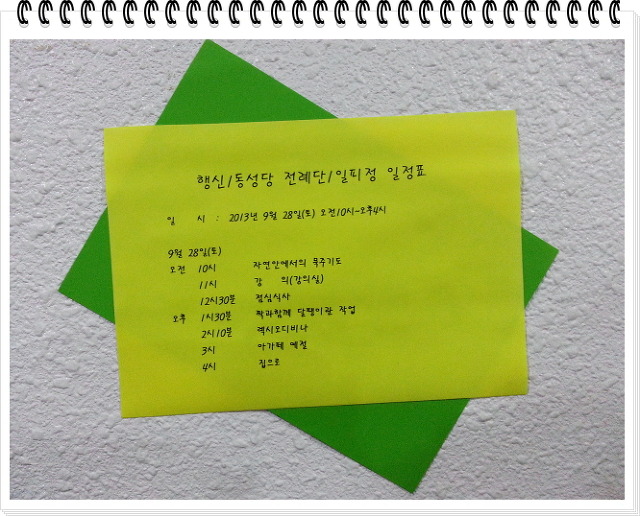 행신/동성당 전례단/일피정 일정표
일 시 : 2013년 9월 28일(토) 오전10시-오후4시
9월 28일(토)
오전 10시 자연안에서의 묵주기도
11시 강 의(강의실)
12시30분 점심식사
오후 1시30분 짝과함께 달팽이관 작업
2시10분 렉시오디비나
3시 아가페 예절
4시 집으로